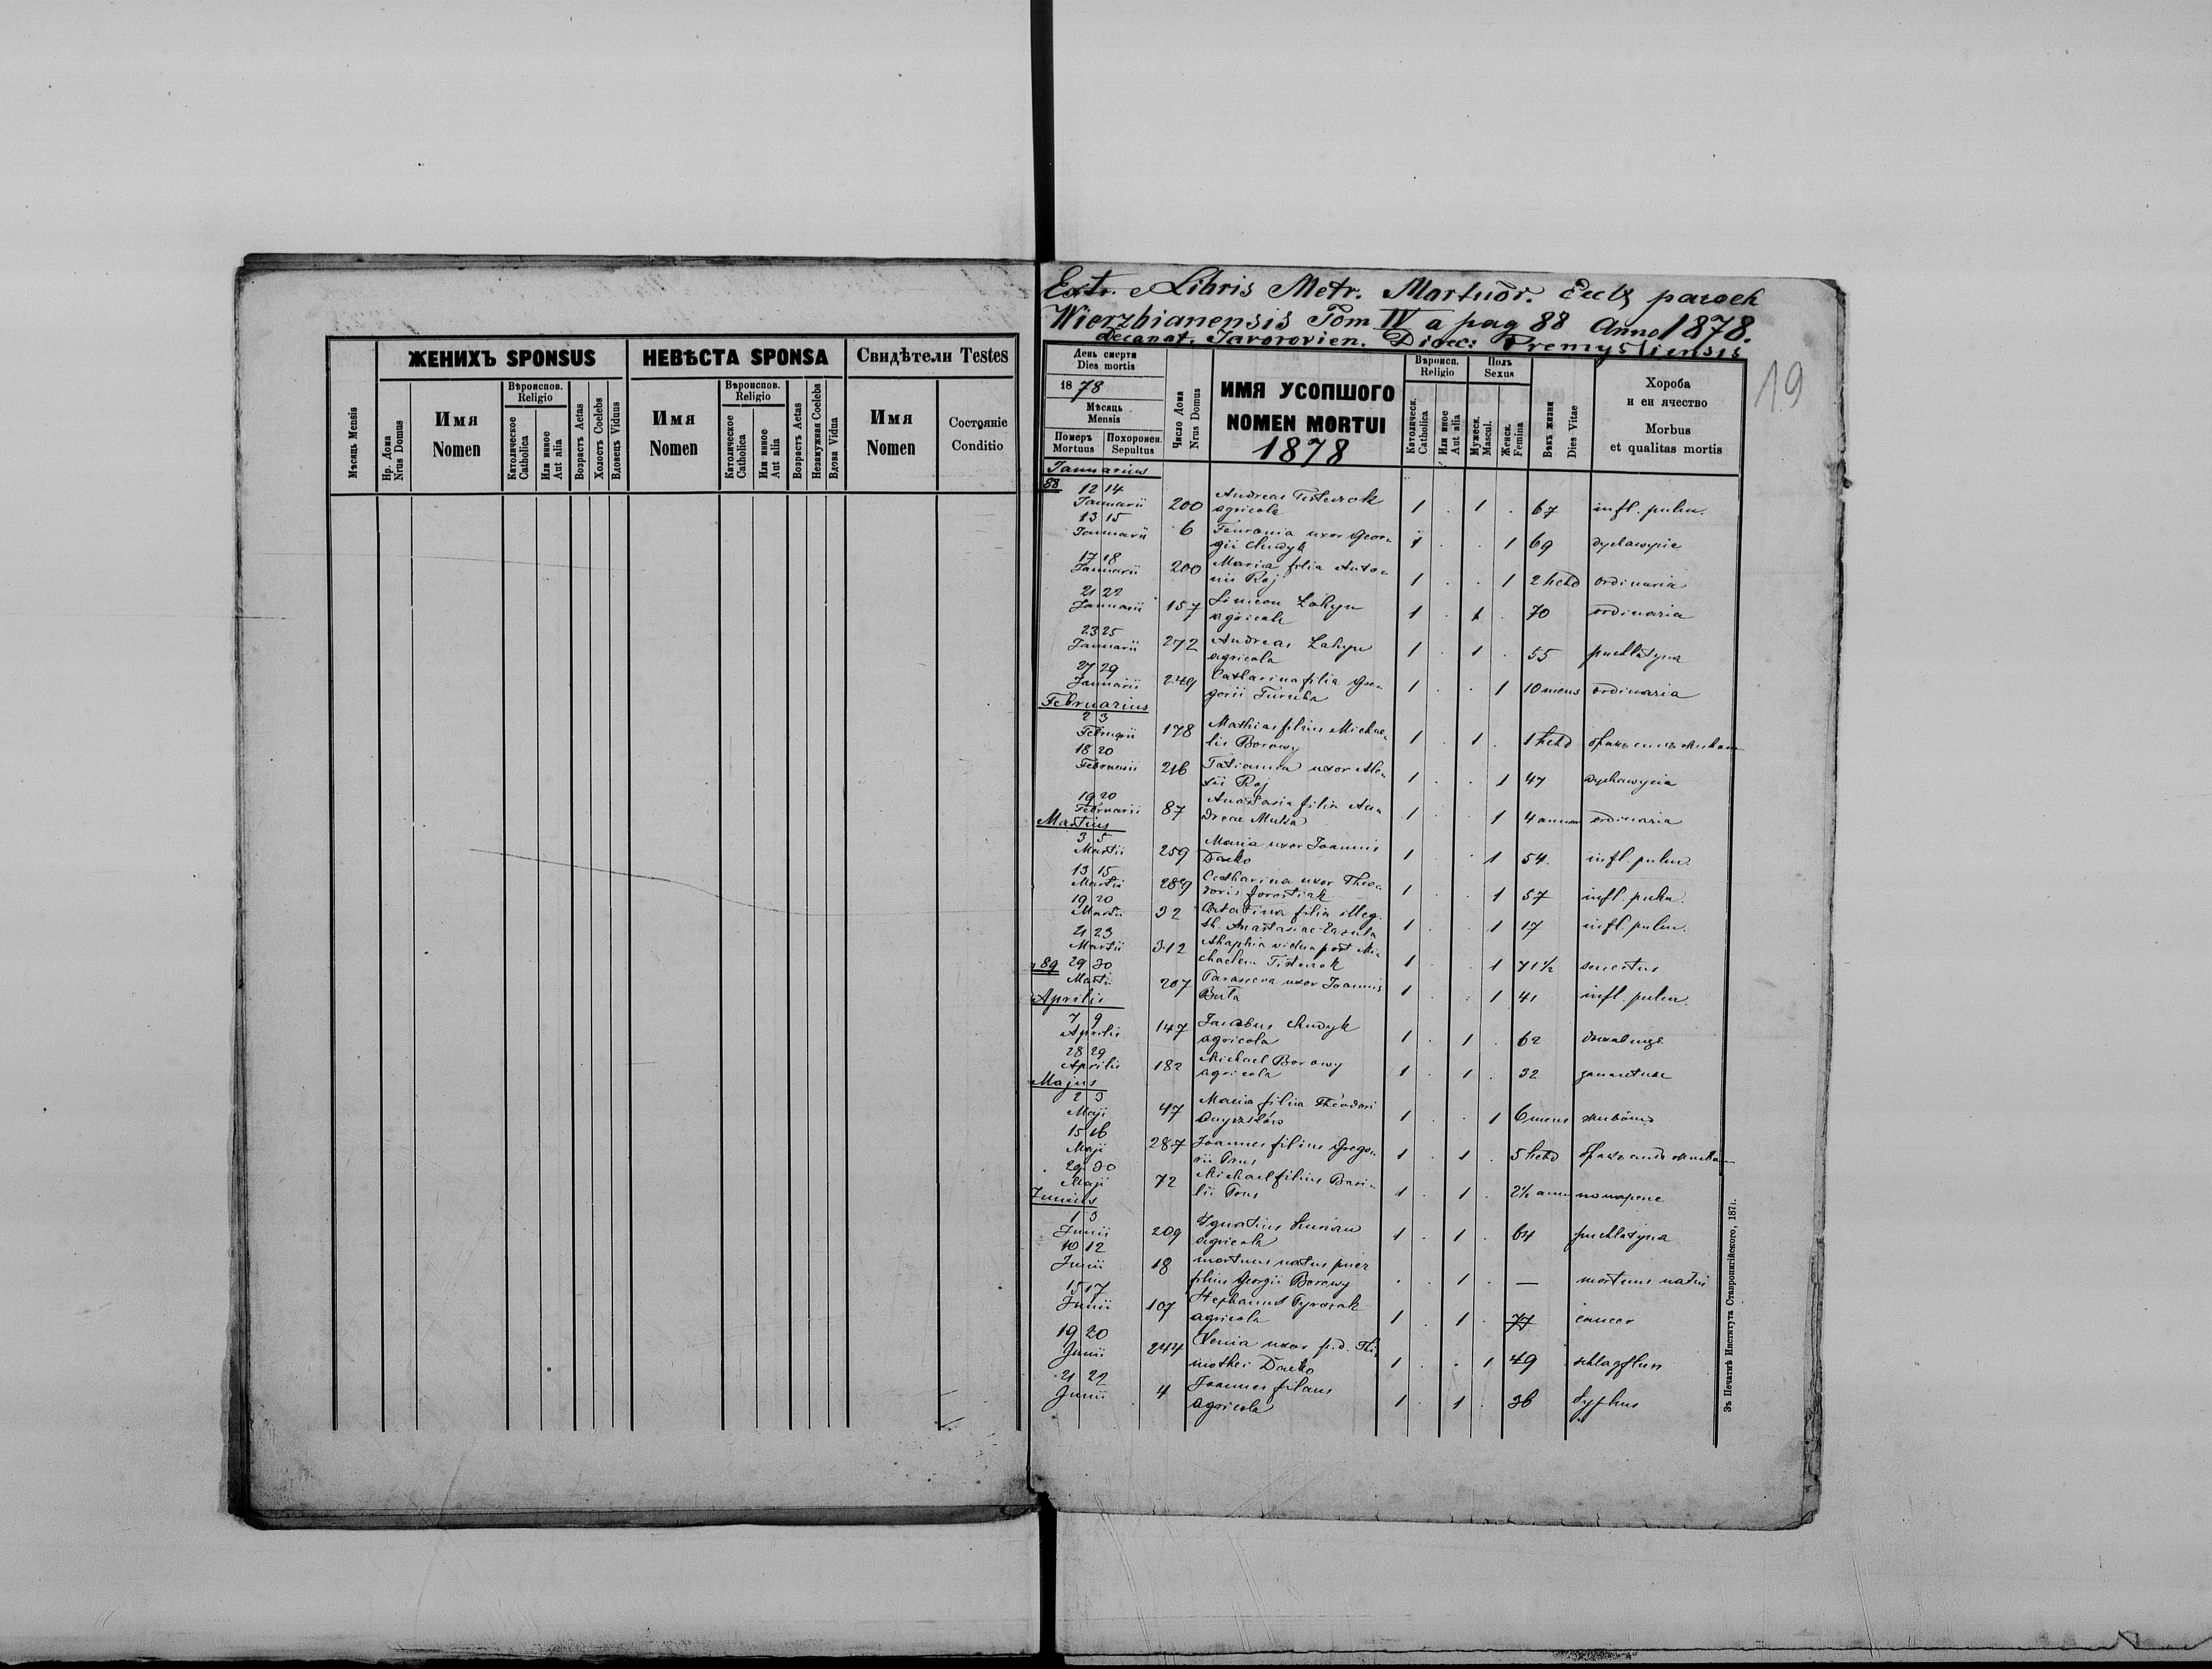 ЖЕНИХЪ SPONSUS
НЕВѢСТА SPONSA
Свидѣтели Testes
Мѣсяць Mensis
Нр. Дома
Nrus Domus
Имя
Nomen
Вѣроиспов.
Religio
Католическое
Catholica
Или иное
Aut alia
Возрастъ Aetas
Холостъ Coelebs
Вдовецъ Viduus
Имя
Nomen
Вѣроиспов.
Religio
Католическое
Catholica
Или иное
Aut alia
Возрастъ Aetas
Незамужная Coelebs
Вдова Vidua
Имя
Nomen
Состояніе
Conditio
Extr. e Libris Metr. Mortuor. Eccl. paroch
Wierzbianensis Tom IV a pag 88 Anno 1878.
Decanat. Javorovien. Dioec: Premysliensis
19
День смерти
Dies mortis
1878
Мѣсяць
Mensis
Померъ
Mortuus
Похоронен.
Sepultus
Число Дома
Nrus Domus
ИМЯ УСОПШОГО
NOMEN MORTUI
1878
Вѣроисп.
Religio
Католическ.
Catholica
Или иное
Aut alia
Полъ
Sexus
Мужеск.
Mascul.
Женск.
Femina
Вѣкъ жизни
Dies Vitae
Хороба
и еи ячество
Morbus
et qualitas mortis
Januarius
88
12 14
Januarii 200 Andreas
agricola 1 . 1 . 67 infl. pulm.
13 15
Januarii 6 uxor Geor
gii Chudyk 1 . . 1 69
17 18
Januarii 200 Maria filia Anto
nii Roj 1 . . 1 2 hebd ordinaria
21 22
Januarii 157 Simeon Lahyn
agricola 1 . 1 . 70 ordinaria
23 25
Januarii 272 Andreas Lahyn
agricola 1 . 1 . 55 puchlatyna
27 29
Januarii 249 Catharina filia Gre
gorii 1 . . 1 10 mens ordinaria
Februarius
2 3
Februarii 178 Mathias filius Michae
lis Borowy 1 . 1 . 1 hebd
18 20
Februarii 216 Tatianna uxor Ale
xii Roj 1 . . 1 47 dychawycia
19 20
Februarii 87 Anastasia filia An
dreae 1 . . 1 4 annor ordinaria
Martius
3 5
Martii 259 Maria uxor Joannis
Dacko 1 . . 1 54 infl. pulm.
13 15
Martii 289 Catharina uxor Theo
doris 1 . . 1 57 infl. pulm.
19 20
Martii 32 filia illeg.
th. Anastasiae 1 . . 1 17 infl. pulm.
21 23
Martii 312 Ahaphia vidua post Mi
chaelem 1 . . 1 71½ senectus
89 29 30
Martii 207 Parascena uxor Joannis
1 . . 1 41 infl. pulm.
Aprilis
7 9
Aprilis 147 Jacobus Chudyk
agricola 1 . 1 . 62
28 29
Aprilis 182 Michael Borowy
agricola 1 . 1 . 32
Majus
2 3
Maji 47 Maria filia Theodori
1 . . 1 6 mens
15 16
Maji 287 Joannes filius Grego
rii Prus 1 . 1 . 5 hebd
29 30
Maji 72 Michael filius Basi
lii Prus 1 . 1 . 2½ ann
Junius
1 3
Junii 209 Ignatius
agricola 1 . 1 . 64 puchlatyna
10 12
Junii 18 mortuus natus puer
filius Georgii Borowy . . 1 . — mortuus natus
15 17
Junii 107 Stephanus
agricola 1 . 1 . 77 cancer
19 20
Junii 244 Xenia uxor p.d. Thi
mothei Dacko 1 . . 1 49 schlagfluss
21 22
Junii 4 Joannes
agricola 1 . 1 . 36 typhus
Зъ Печатнѣ Института Ставропигійского, 1871.